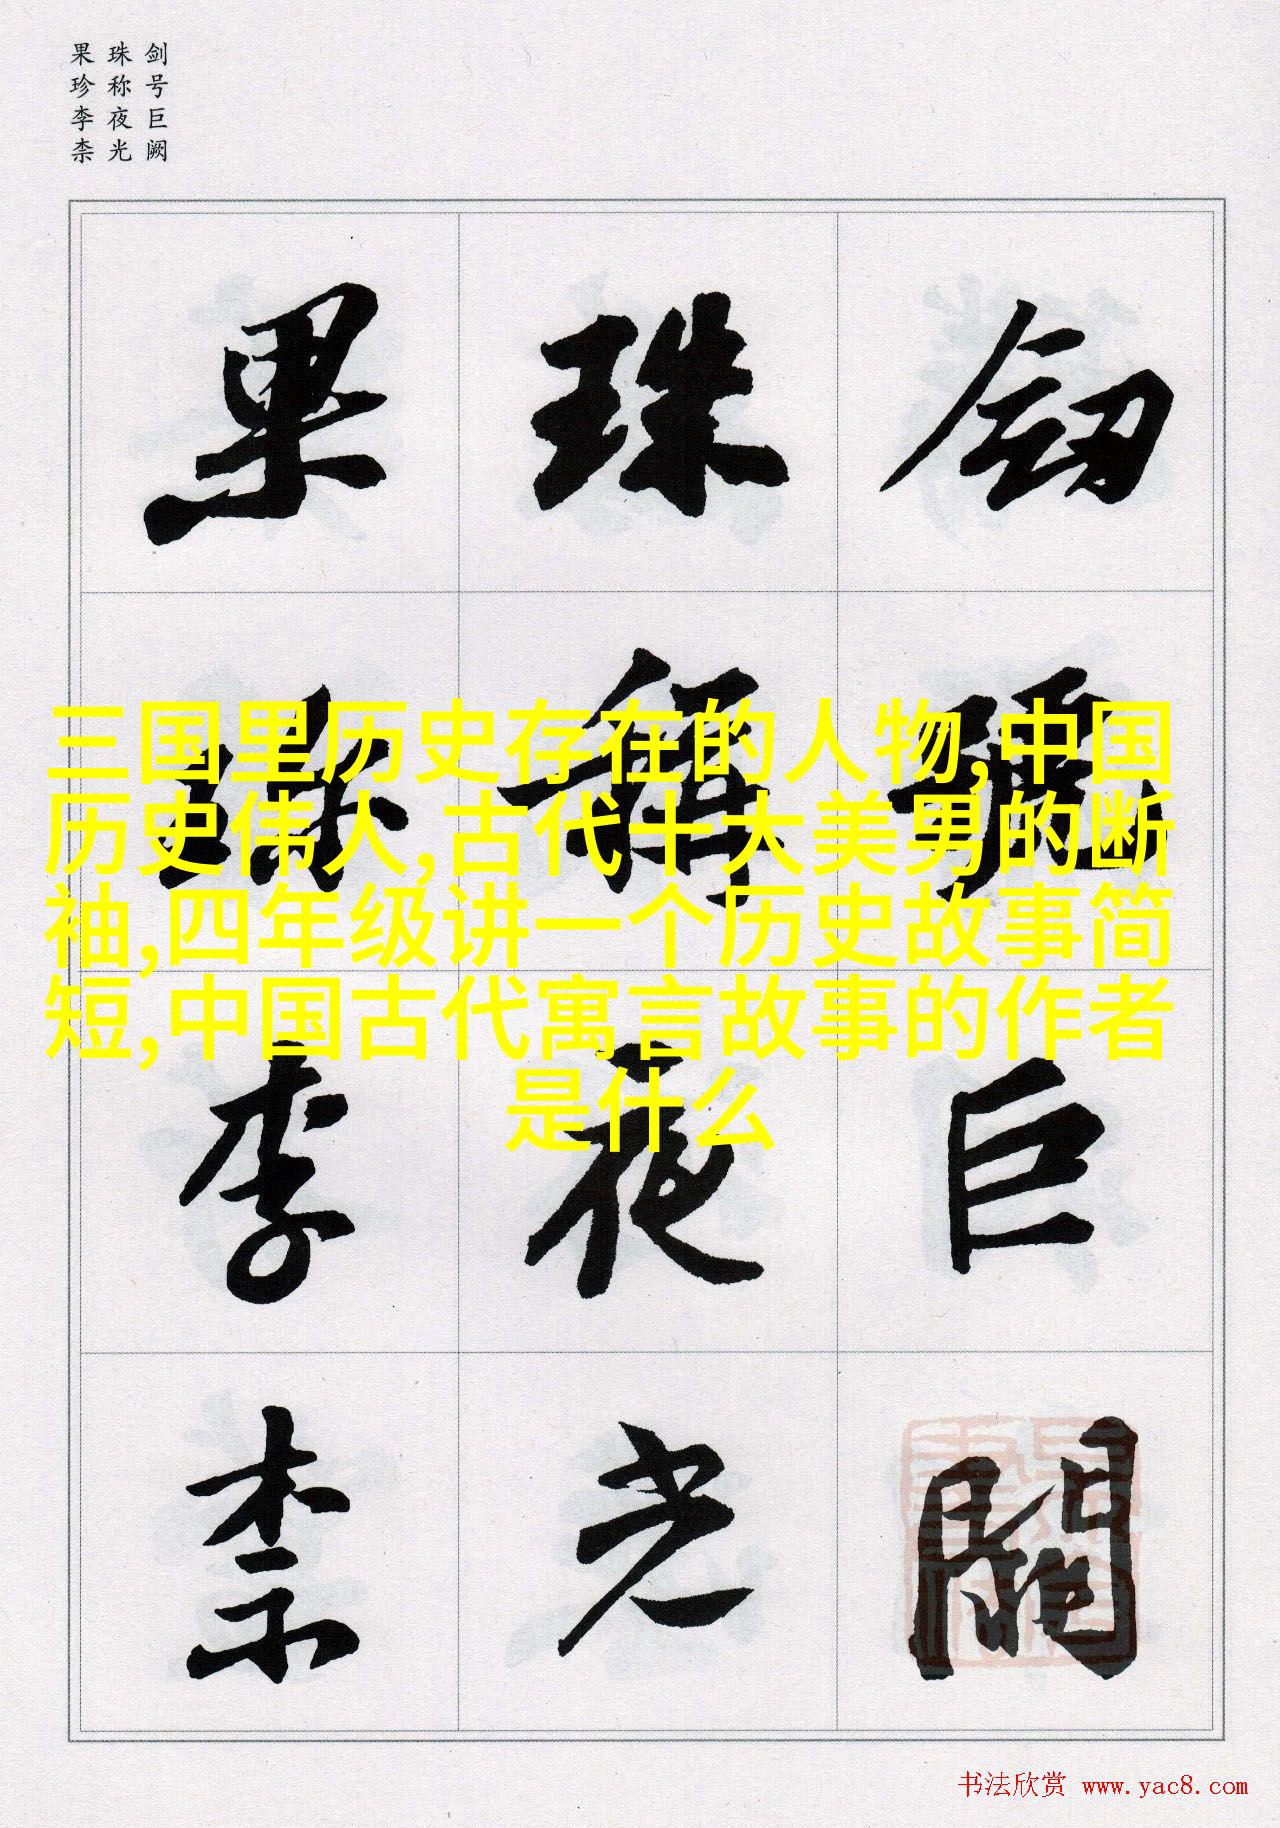 剑号巨阙
珠称夜光
果珍李柰
劍號巨闕
珠稱夜光
果珍李柰
三国里历史存在的人物,中国
历史伟人,古代十大美男的断
袖,四年级讲一个历史故事简
短,中国古代寓言故事的作者
是什么
书法欣赏 www.yac8.com